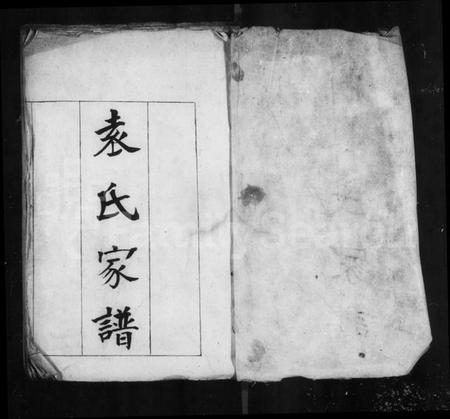 袁氏家譜
FamilySearch